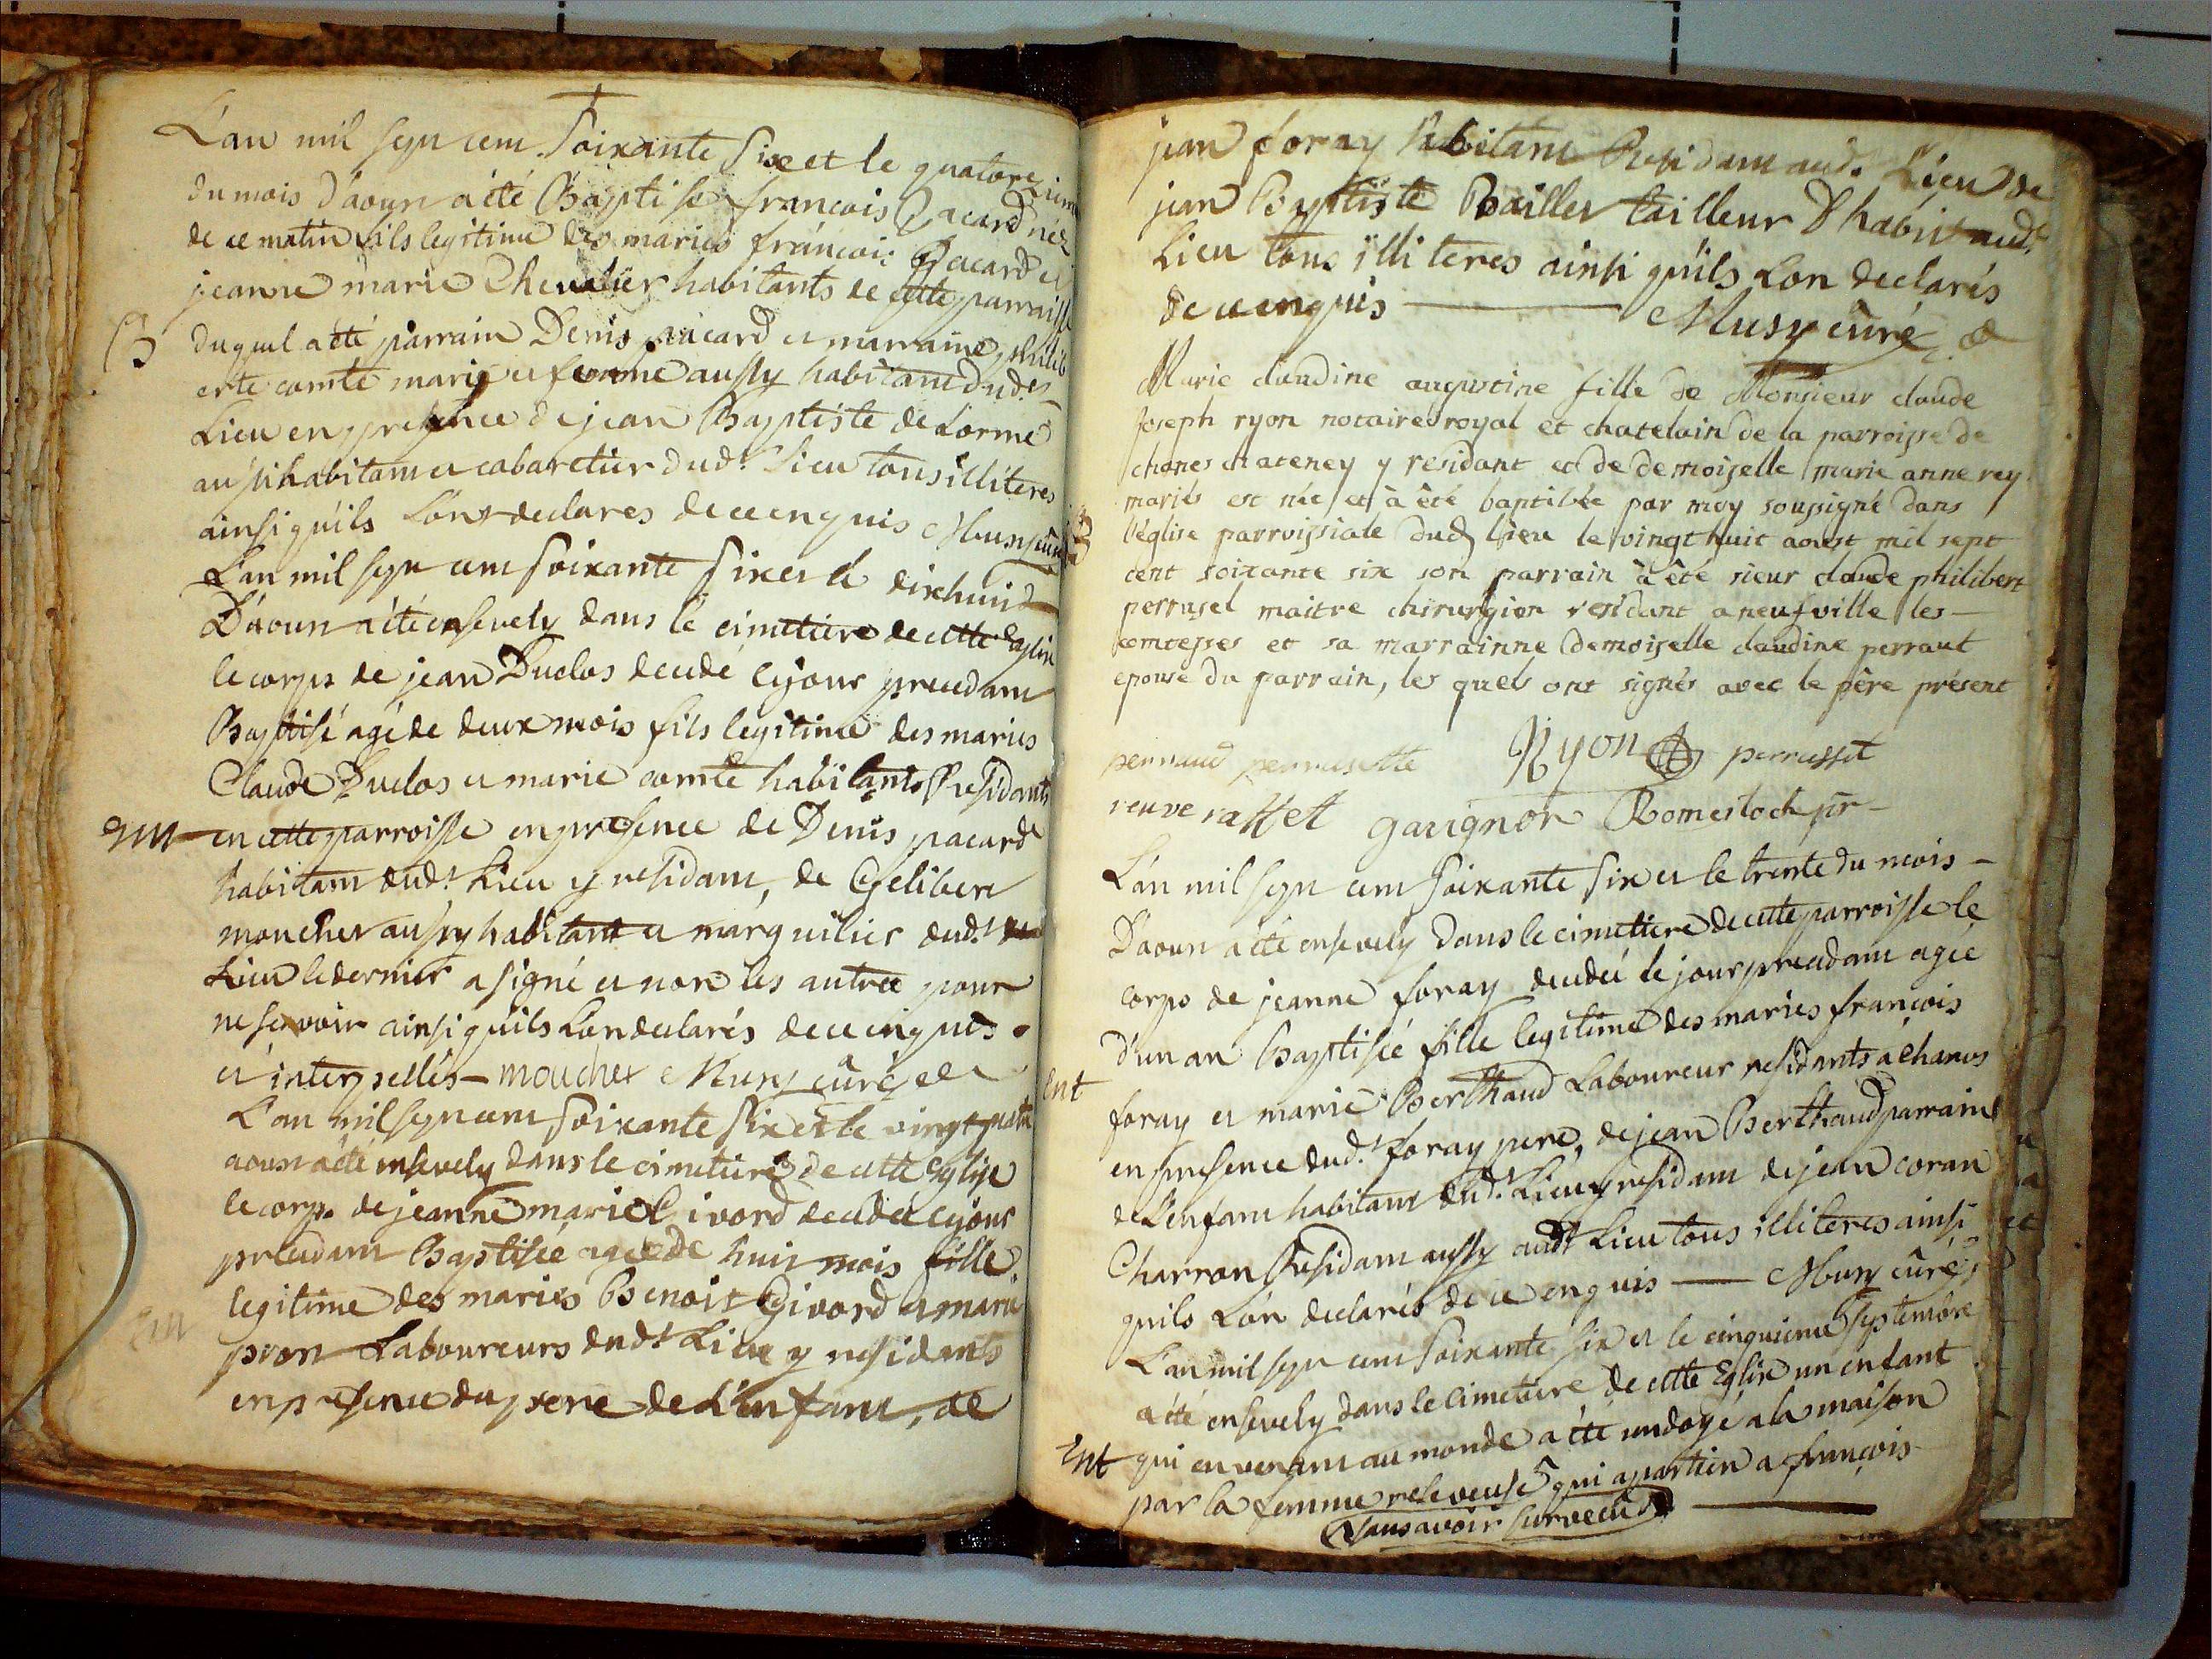 L'an mil sept cent soixante six et le quatorzieme
du mois d'aoust a été Baptisé françois pacard né
de ce matin fils legitime des mariés françois pacard et
jeanne marie Chevalier habitants de cette parroisse
B duquel a été parrain Denis pacard et marraine philib
erte comte mariés et femme aussy habitant dudt
Lieu en presence de jean Baptiste de Lorme
aussi habitant et cabaretier dudt Lieu tous illiteres
ainsi quils Lont declares de ce enquis Musy curé
L'an mil sept cent soixante six et le dixhuit
D'aoust a été ensevely dans le cimetiere de cette Eglise
le corps de jean Duclos decedé le jour precedant
Baptisé agé de deux mois fils legitime des mariés
Claude Duclos et marie comte habitants Residants
Ent en cette parroisse en presence de Denis pacard
habitant dudt Lieu y residant, de
moucher aussy habitant et marguilier dudt
Lieu le dernier a signé et non les autres pour
ne scavoir ainsi quils Lon declarés de ce enquis
et interpellés – moucher Musy curé
L'an mil sept cent soixante six et le vingt quatre
aoust a été ensevely dans le cimetiere de cette Eglise
le corps de jeanne marie Givord decedée le jour
precedant Baptisée agée de huit mois fille
legitime des mariés Benoit Givord et marie
Ent pron Laboureurs dudt Lieu y residants
en presence du pere de L'enfant, de
jean foray habitant Residant aud. Lieu de
jean Baptiste Bailler tailleur D'habit audt
Lieu tous illiteres ainsi quils Lon declarés
de ce enquis — Musy curé
Marie claudine augustine fille de Monsieur claude
Joseph ryon notaire royal et chatelain de la parroisse de
chanes chateney y residant et de demoiselle marie anne rey
mariés est née et à êté baptisée par moy soussigné dans
B l'église parroissiale dud lieu le vingt huit aoust mil sept
cent soixante six son parrain à êté sieur claude philibert
perrusel maitre chirurgien residant a neufville les –
comtesses et sa marrainne demoiselle claudine perraut
epouse du parrain, les quels ont signés avec le père présent
perraud perrusette Ryon perrusset
veuve rasset gavignon Romestock ptr –
L'an mil sept cent soixante six et le trente du mois –
D'aoust a été ensevely dans le cimetiere de cette parroisse le
corps de jeanne foray decedée le jour precedant agée
d'un an Baptisée fille legitime des mariés françois
Ent foray et marie Berthaud Laboureur residants a Chanes
en presence dudt foray pere, de jean Berthaud parrain
de L'enfant habitant dudt Lieu y residant de jean coran
Charron Residant aussy audt Lieu tous illiteres ainsi
quils Lon declarés de ce enquis — Musy curé
L'an mil sept cent soixante six et le cinquieme septembre
a été ensevely dans le cimetiere de cette Eglise un enfant
Ent qui en venant au monde a été ondoyé a la maison
par la femme releveuse qui apartien a françois
sans avoir survecu